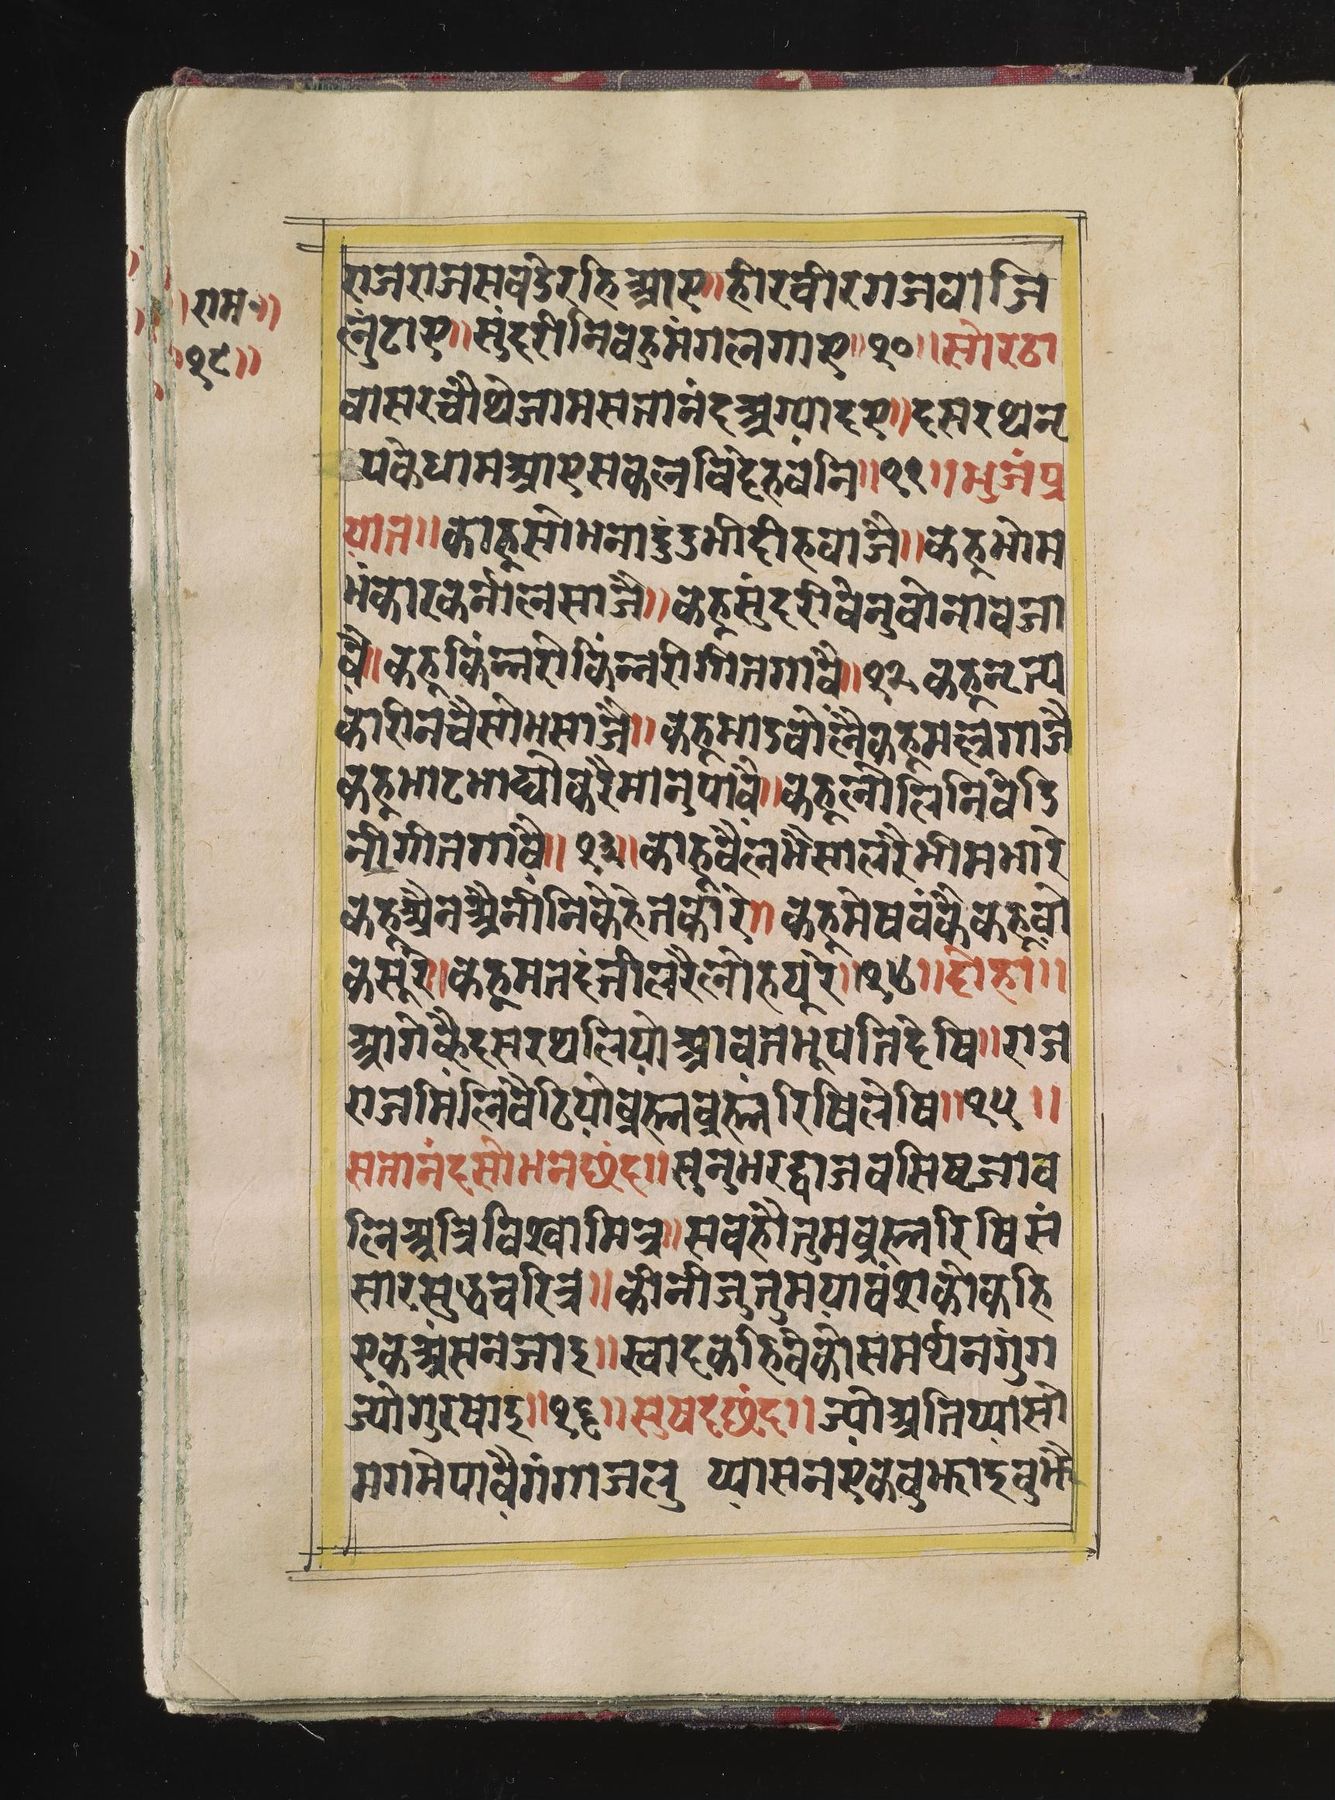 ॥राम॥
॥१८॥
राजराजसवडेरहिआए॥हीरवीरगजवाजि
लुंटाए॥सुंदरीनिवहुमंगलगाए॥१०॥सोरठा
वासरचौथेजामसतानंदअग्यादए॥दसरथनृ
पकेधामआएसकलविदेहवनि॥११॥भुजंप्र
यात॥काहूसोभनादुंदुभीदीहवाजै॥कहूभीम
भंकारकर्नालसाजै॥कहूसुंदरीवैनुवीनावजा
वै॥कहूकिंन्नरीकिंन्नरीगीतगावै॥१२कहूनृत्य
कारीनचैसोभसाजै॥कहूभाडवोलैकहूमल्लगाजै
कहूभाटभाष्यौकरैमानुपावै॥कहूलोलिनिवेडि
नीगीतगावै॥१३॥काहूवैलभैसालरैभीमभारे
कहूअैनअैनीनिकेहेतकारे॥कहूमेषवंकैकहूवो
कसूरे॥कहूमतदंतीलरैलोहपूरे॥१४॥दोहा॥
आगेकैदसरथलियोआवतभूपतिदेषि॥राज
राजमिलिवैठियोव्रह्लव्रह्लरिषिलेषि॥१५॥
सतानंदसोभनछंद॥सुनुभरद्वाजवसिष्टजाव
लिअत्रिविश्वामित्र॥सवहौतुमव्रह्लरिषिसं
सारसुध्धचरित्र॥कीनीजुतुमयावंशकीकहि
एकअंसनजाइ॥स्वादकहिवेकौसमर्थनगुंग
ज्योगुरषाइ॥१६॥सुषदछंद॥ज्योअतिप्यासो
मगमेपावैगंगाजलु प्यासनएकेवुझाइवुझै